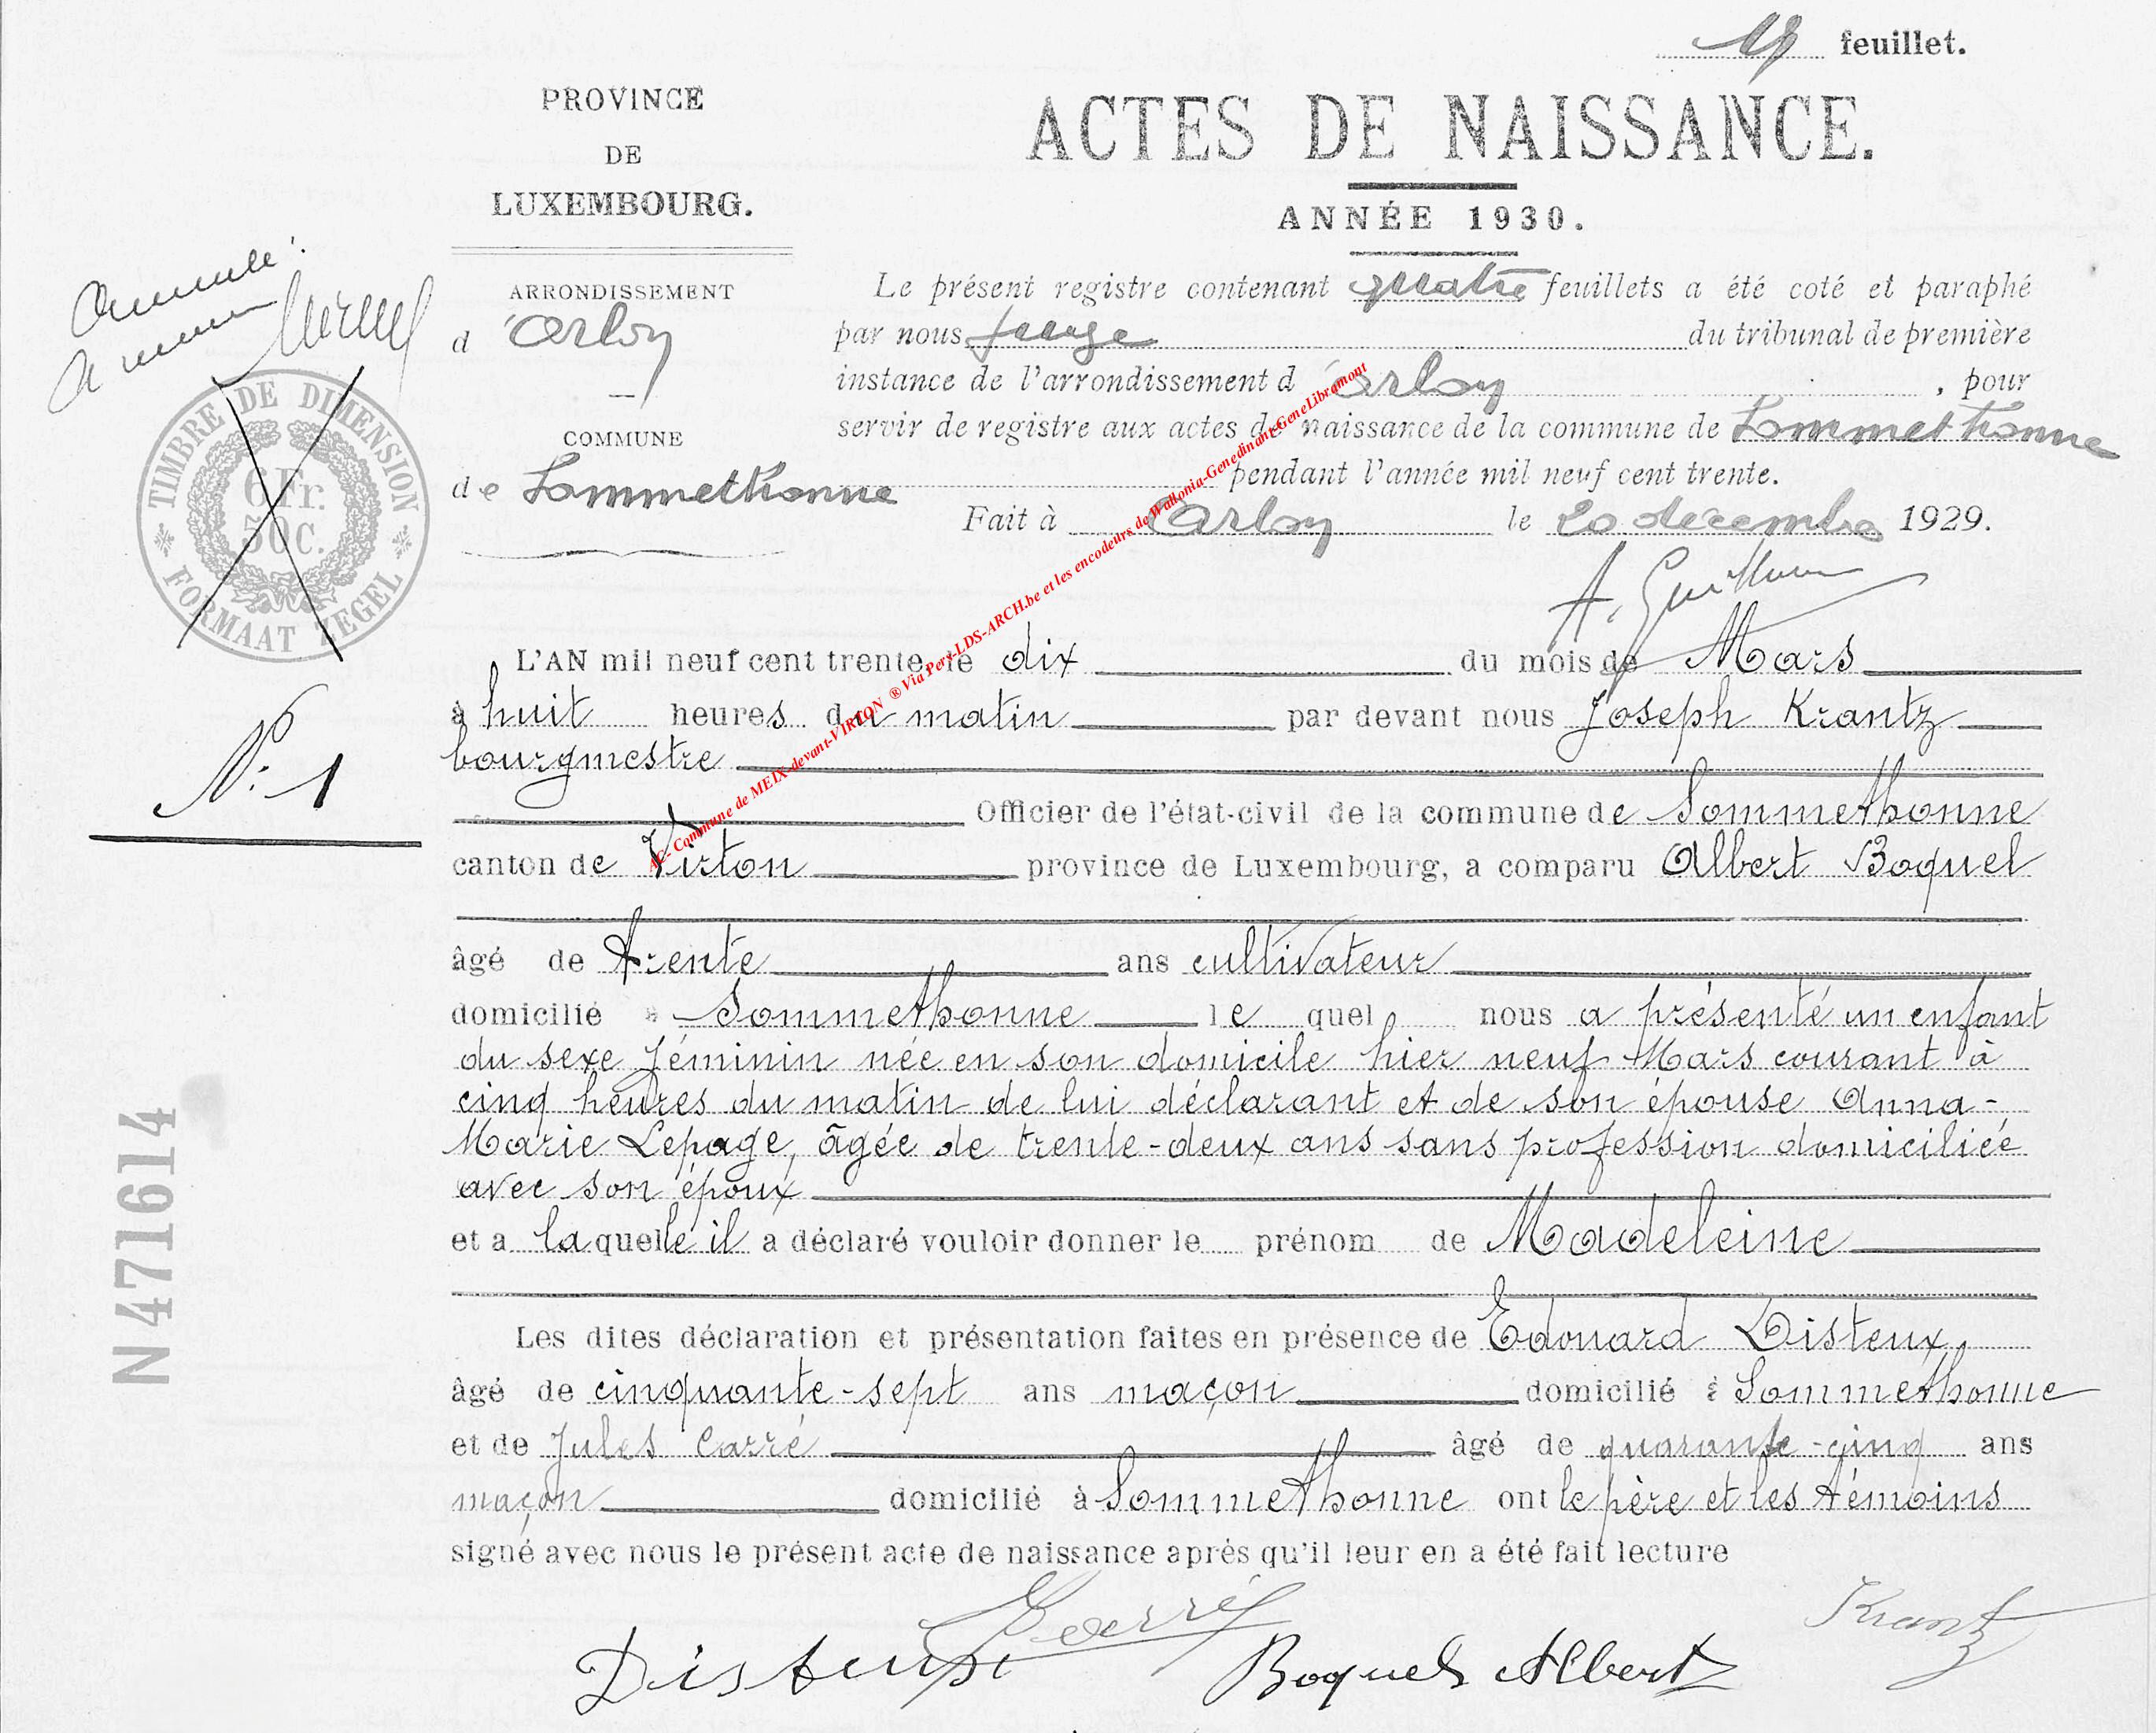 feuillet.
PROVINCE
DE
LUXEMBOURG.
ACTES DE NAISSANCE.
ANNÉE 1930.
annulé
ARRONDISSEMENT
d'Arlon
COMMUNE
de Sommethonne
TIMBRE DE DIMENSION
6 Fr.
50 C.
FORMAAT ZEGEL
Le présent registre contenant quatre feuillets a été coté et paraphé
par nous juge du tribunal de première
instance de l'arrondissement d'Arlon, pour
servir de registre aux actes de naissance de la commune de Sommethonne
pendant l'année mil neuf cent trente.
Fait à Arlon le 20 decembre 1929.
A. Guillaume
AC- Commune de MEIX-devant-VIRTON ® Via Pers-LDS-ARCH.be et les encodeurs de Wallonia-Genedinant-GeneLibramont
N° 1
L'AN mil neuf cent trente, le dix du mois de Mars
à huit heures du matin par devant nous Joseph Krantz
bourgmestre
Officier de l'état-civil de la commune de Sommethonne
canton de Virton province de Luxembourg, a comparu Albert Boquel
âgé de trente ans cultivateur
domicilié à Sommethonne lequel nous a présenté un enfant
du sexe féminin née en son domicile hier neuf Mars courant à
cinq heures du matin de lui déclarant et de son épouse Anna-
Marie Lepage, âgée de trente-deux ans sans profession domiciliée
avec son époux
et a laquelle il a déclaré vouloir donner le prénom de Madeleine
Les dites déclaration et présentation faites en présence de Edouard Disteux
âgé de cinquante-sept ans maçon domicilié à Sommethonne
et de Jules Carré âgé de quarante-cinq ans
maçon domicilié à Sommethonne ont le père et les témoins
signé avec nous le présent acte de naissance après qu'il leur en a été fait lecture
N 471614
Carré
Krantz
Disteux
Boquel Albert